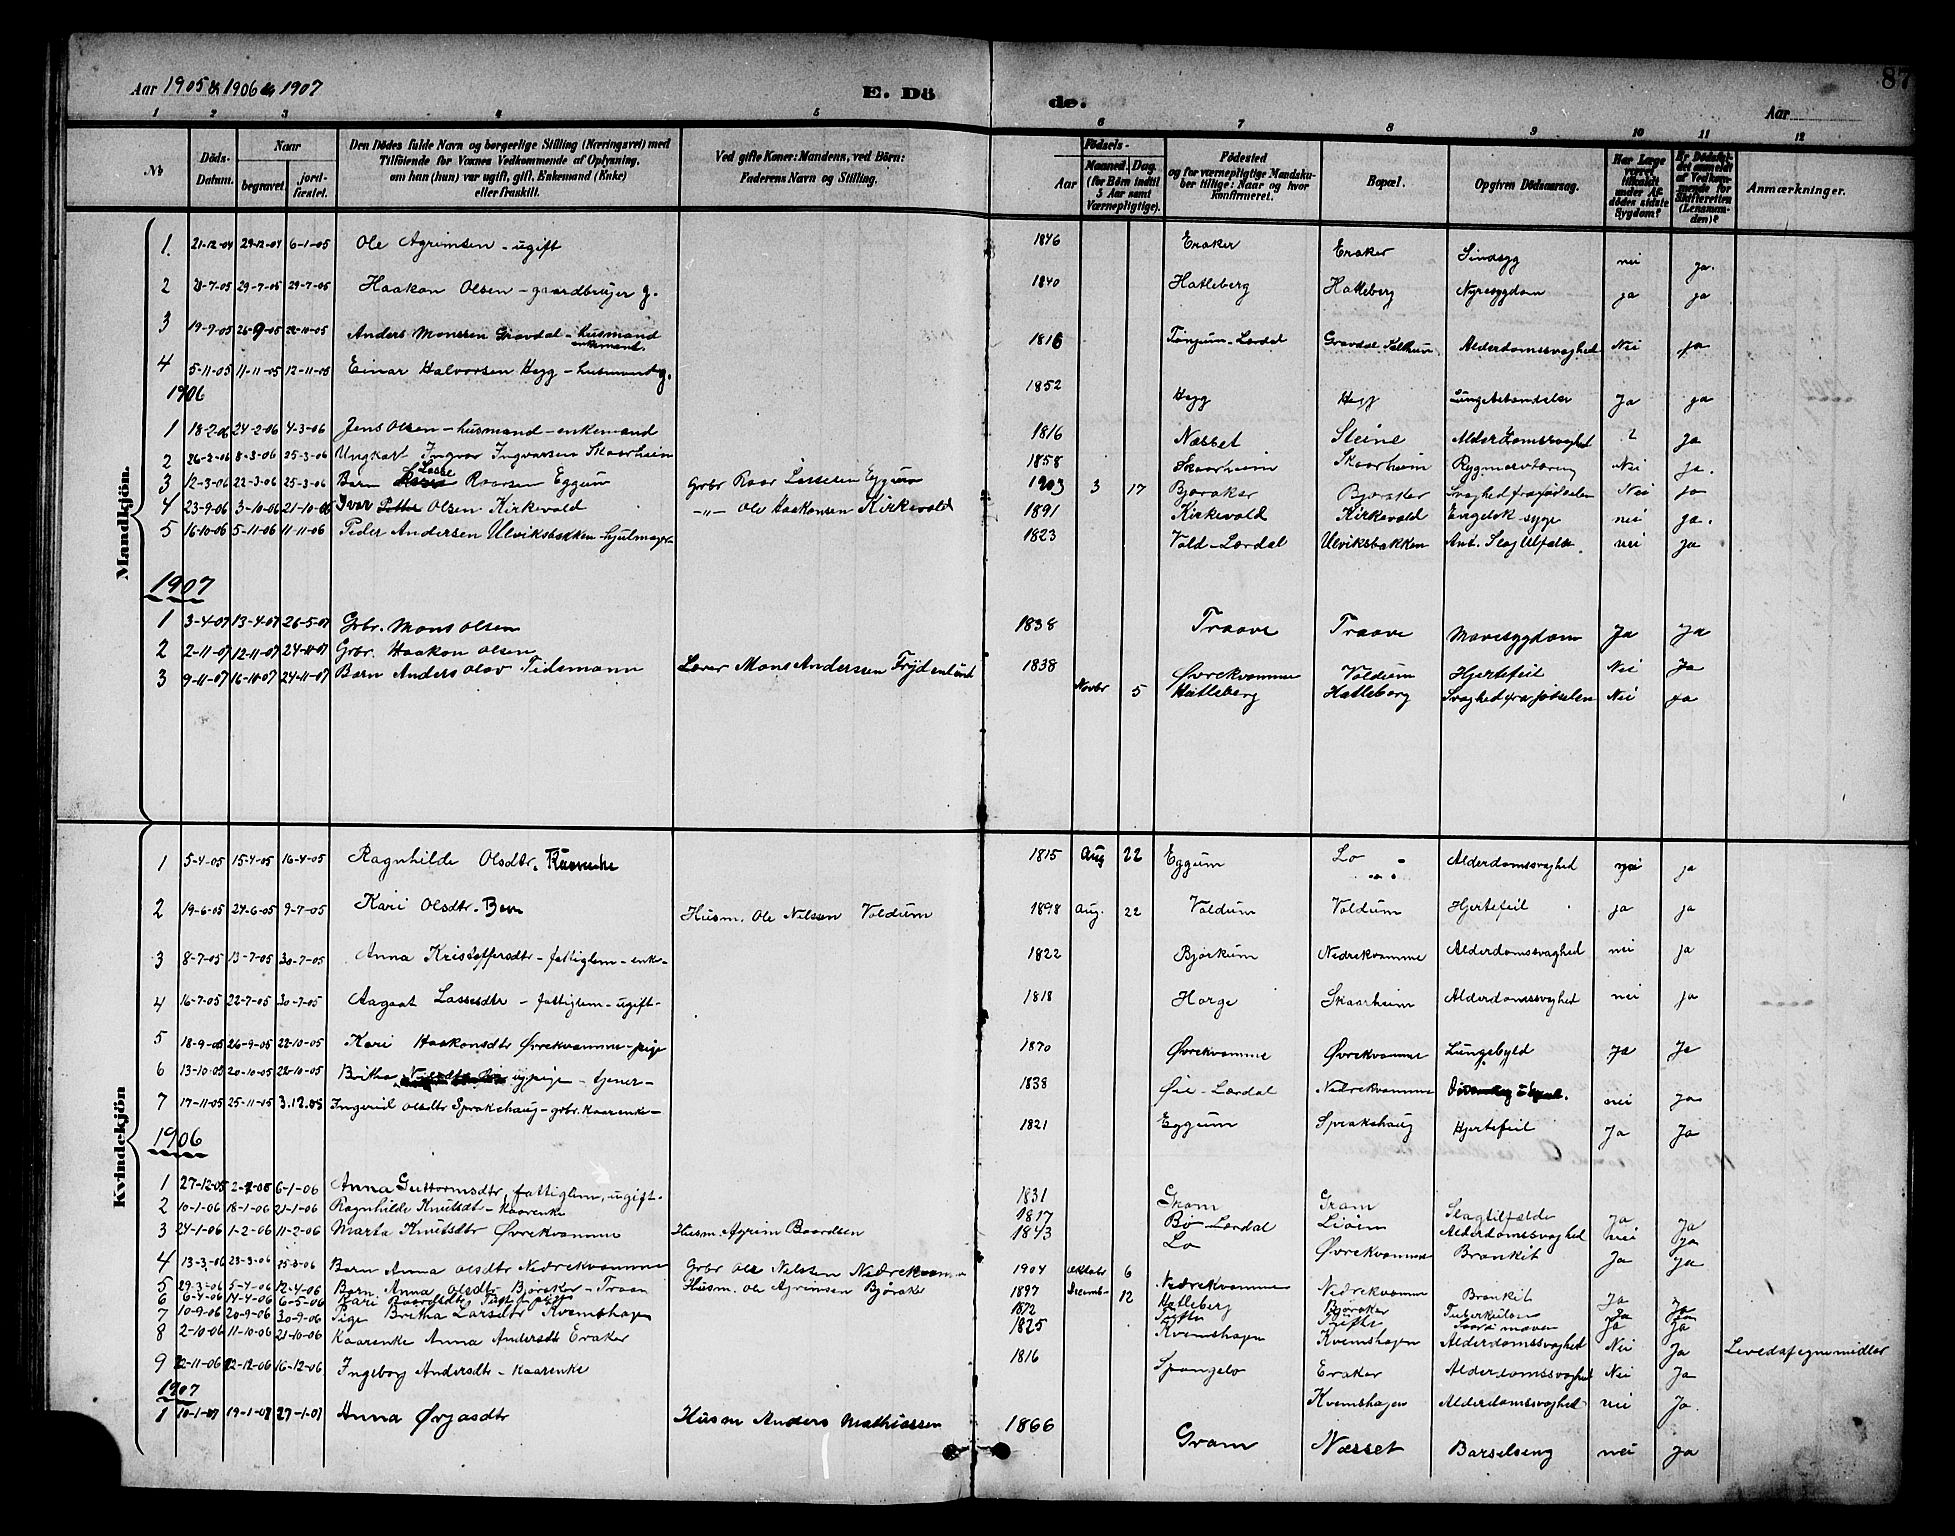 Aar 1905 & 1906 & 1907
E. Dö
de.
87
Aar
1 2 3 4 5 6 7 8 9 10 11 12
No
Döds-Datum.
Naar
begravet.
jordfæstet.
Den Dödes fulde Navn og borgerlige Stilling (Næringsvei) med
Tilföiende for Voxnes Vedkommende af Oplysning,
om han (hun) var ugift, gift, Enkemand (Enke)
eller fraskilt.
Ved gifte Koner: Mandens, ved Börn:
Faderens Navn og Stilling.
Födsels-
Aar
Maaned. Dag.
(for Börn indtil
5 Aar samt
Værnepligtige).
Födested
og for værnepligtige Mandsku-
ber tillige: Naar og hvor
konfirmeret.
Bopæl.
Opgiven Dödsaarsag.
Har Læge
været
tilkaldt
under Af-
dödes sidste
Sygdom?
Er Dödsfal-
det anmeldt
af Vedkom-
mende for
Skifteretten
(Lensman-
den)?
Anmærkninger.
Mandkjön.
1. 21-12-04 29-12-04 6-1-05 Ole Agrimsen - ugift 1846 Eraker Eraker Sindsyg nei ja.
2 29-7-05 29-7-05 Haakon Olsen - gaardbruger g. 1840 Hatleberg Hatleberg Nyresygdom ja ja
3 19-9-05 26-9-05 22-10-05 Anders Monssen Gravdal - Husmand enkemand. 1816 Tønjum - Lærdal Gravdal Alderdomssvaghed Nei ja
4 5-11-05 11-11-05 12-11-05 Einar Halvorsen Hegg - husmand g. 1852 Hegg Hegg Lungebetændelse Ja ja
1906
1 18-2-06 24-2-06 4-3-06 Jens Olsen - husmand - enkemand 1816 Næsset Steine Alderdomssvaghed ? Ja
2 26-2-06 8-3-06 25-3-06 Ungkarl Ingvar Ingvarsen Skaarheim 1858 Skaarheim Skaarheim Rygmarvtæring Nei Ja.
3 12-3-06 22-3-06 25-3-06 Barn Lasse Roarsen Eggum Grbr Roar Lassesen Eggum 1903 3 17 Bjøraker Bjøraker Svaghed fra födselen Nei ja
4 23-9-06 3-10-06 21-10-06 Ivar Olsen Kirkevold -"- Ole Haakonsen Kirkevold 1891 Kirkevold Kirkevold Engelsk syge nei ja.
5 16-10-06 5-11-06 11-11-06 Peder Andersen Ulviksbakken - hjulmager 1823 Vold - Lærdal Ulviksbakken Ant. Slagtilfælde. nei Ja
1907
1 3-4-07 13-4-07 26-5-07 Grbr. Mons Olsen 1838 Traave Traave Mavesygdom Ja Ja
2 2-11-07 12-11-07 24-11-07 Grbr. Haakon Olsen 1838 Øvrekvamme Voldum Hjertefeil Nei Ja
3 9-11-07 16-11-07 24-11-07 Barn Anders Olav Tidemann Lærer Mons Andersen Frydenlund Novbr 5 Hatleberg Hatleberg Svaghed fra födselen Nei ja
Kvindekjön
1 5-4-05 15-4-05 16-4-05 Ragnhilde Olsdtr. Kaarenke 1815 Aug 22 Eggum Lo Alderdomssvaghed nei ja
2 19-6-05 24-6-05 9-7-05 Kari Olsdtr. Barn Husm. Ole Nilsen Voldum 1898 Aug. 22 Voldum Voldum Hjertefeil ja ja
3 8-7-05 13-7-05 30-7-05 Anna Kristoffersdtr - fattiglem - enke - 1822 Bjørkum Nedrekvamme Alderdomssvaghed nei ja
4 16-7-05 22-7-05 30-7-05 Aagaat Lassesdtr - fattiglem - ugift - 1818 Horge Skaarheim Alderdomssvaghed nei ja
5 18-9-05 26-9-05 22-10-05 Kari Haakonsdtr Øvrekvamme - pige 1870 Øvrekvamme Øvrekvamme Lungebyld Ja Ja
6 13-10-05 20-10-05 22-10-05 Britha pige - tjener - 1838 Øie - Lærdal Nedrekvamme nei Ja
7 17-11-05 25-11-05 3.12.05 Ingerid Olsdtr Sprakehaug - grbr. kaarenke - 1821 Eggum Sprakehaug Hjertefeil Ja Ja
1906
1 27-12-05 6-1-06 Anna Guttormsdtr, fattiglem, ugift - 1831 Gram Gram Slagtilfælde Ja Ja
2 10-1-06 18-1-06 21-1-06 Ragnhilde Knutsdt - Kaarenke 1817 Bø Lærdal Alderdomssvaghed nei Ja
3 24-1-06 1-2-06 11-2-06 Marta Knutsdtr Øvrekvamme Husm. Agrim Baardsen 1843 Lo Øvrekvamme Bronkit Ja Ja
4 13-3-06 23-3-06 Barn Anna Olsdtr Nedrekvamme Grbr Ole Nilsen Nedrekvamme 1904 oktobr 6 Nedrekvamme Nedrekvamme Bronkit Ja
5 29-3-06 5-4-06 12-4-06 Barn. Anna Olsdtr Bjøraker - Traan Husm. Ole Agrimsen Bjøraker 1897 12 Hatleberg Bjøraker Tuberkulose Ja Ja
6 6-4-06 14-4-06 6-5-06 Kari 1872 Ja Ja
7 10-9-06 20-9-06 30-9-06 Pige Britha Larsdtr Kvemshagen 1825 Kvemshagen Kvemshagen Alderdomssvaghed Nei Ja Levedaf egne midler
8 2-10-06 11-10-06 21-10-06 Kaarenke Anna Andersdt Eraker 1816 Spangelo Eraker Alderdomssvaghed Nei Ja
9 22-11-06 12-12-06 16-12-06 Ingeborg Andersdtr - kaarenke Kvemshagen Alderdomssvaghed nei Ja.
1907
1 10-1-07 19-1-07 27-1-07 Anna Ørjasdtr Husm Anders Mathiassen 1866 Gram Næsset Barselseng nei Ja